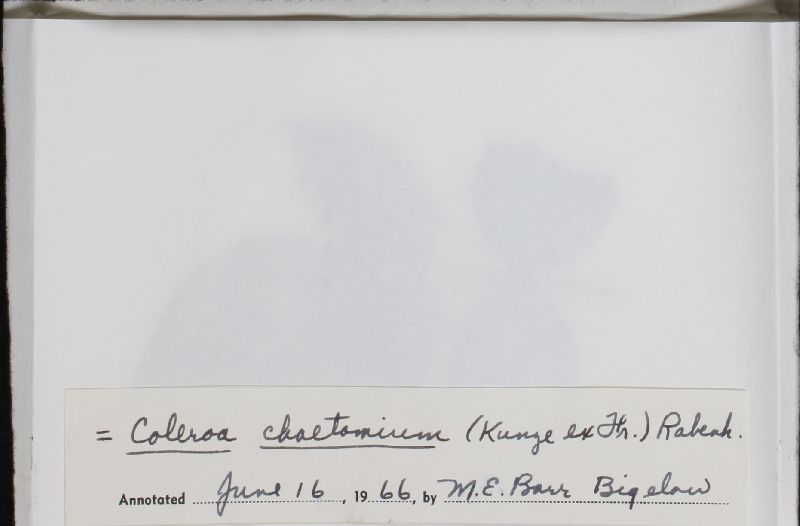 = Coleroa chaetomium (Kunze ex Fr.) Rabenh.
Annotated June 16, 1966, by M.E. Barr Bigelow